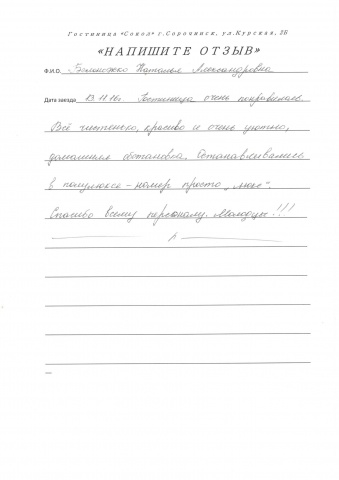 Гостиница «Сокол» г.Сорочинск, ул.Курская, 2Б
«НАПИШИТЕ ОТЗЫВ»
Ф.И.О. Наталья Александровна
Дата заезда 13.11.16г. Гостиница очень понравилась.
Всё чистенько, красиво и очень уютно,
домашняя обстановка. Останавливались
в полулюксе – номер просто „люкс".
Спасибо всему персоналу. Молодцы!!!